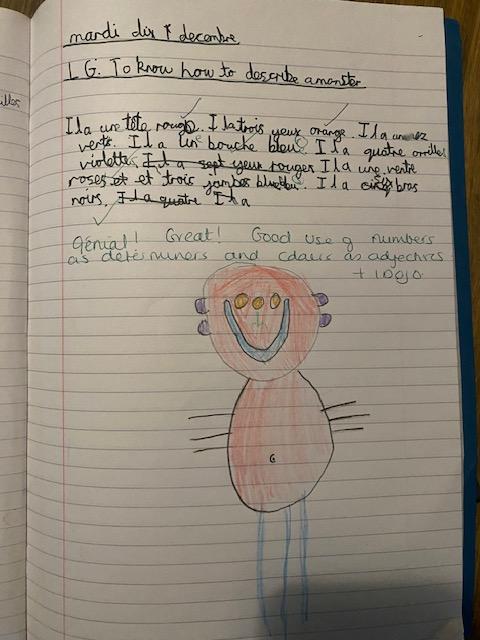 mardi dix 1 decembre
L.G. To know how to describe a monster
Il a une tête rouge. Il a trois yeux orange. Il a un nez
verts. Il a une bouche bleue. Il a quatre orrilles
violettes. Il a sept yeux rouges Il a une ventre
roses et et trois jambes bleu. Il a cinq bras
noirs. Il a quatre Il a
Génial! Great! Good use of numbers
as determiners and colours as adjectives
+ 1 Dojo